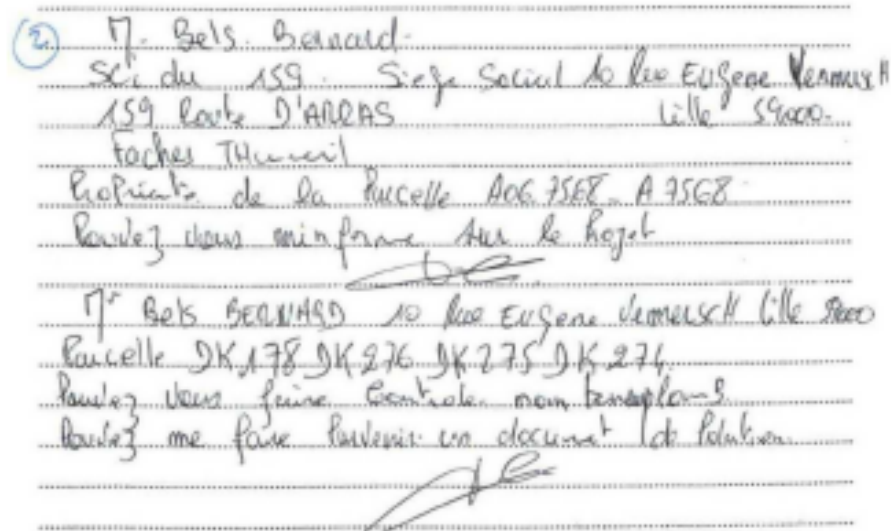 2.
M. Bels. Bernard.
SCi du 159. Siege Social 10 Rue EUGene Vermersch
159 Route D'ARRAS Lille 59000.
Faches THumeril
Propriete de la Parcelle A06.7568. A 7568
Pouvez vous minforme sur le Projet
Mr Bels BERNARD 10 Rue EUGene Vermerscht Lille
Parcelle DK.178 DK 276 DK 275 DK 274
Pouvez vous faire Controle mon
Pouvez me faire Parvenir un document de Polution.